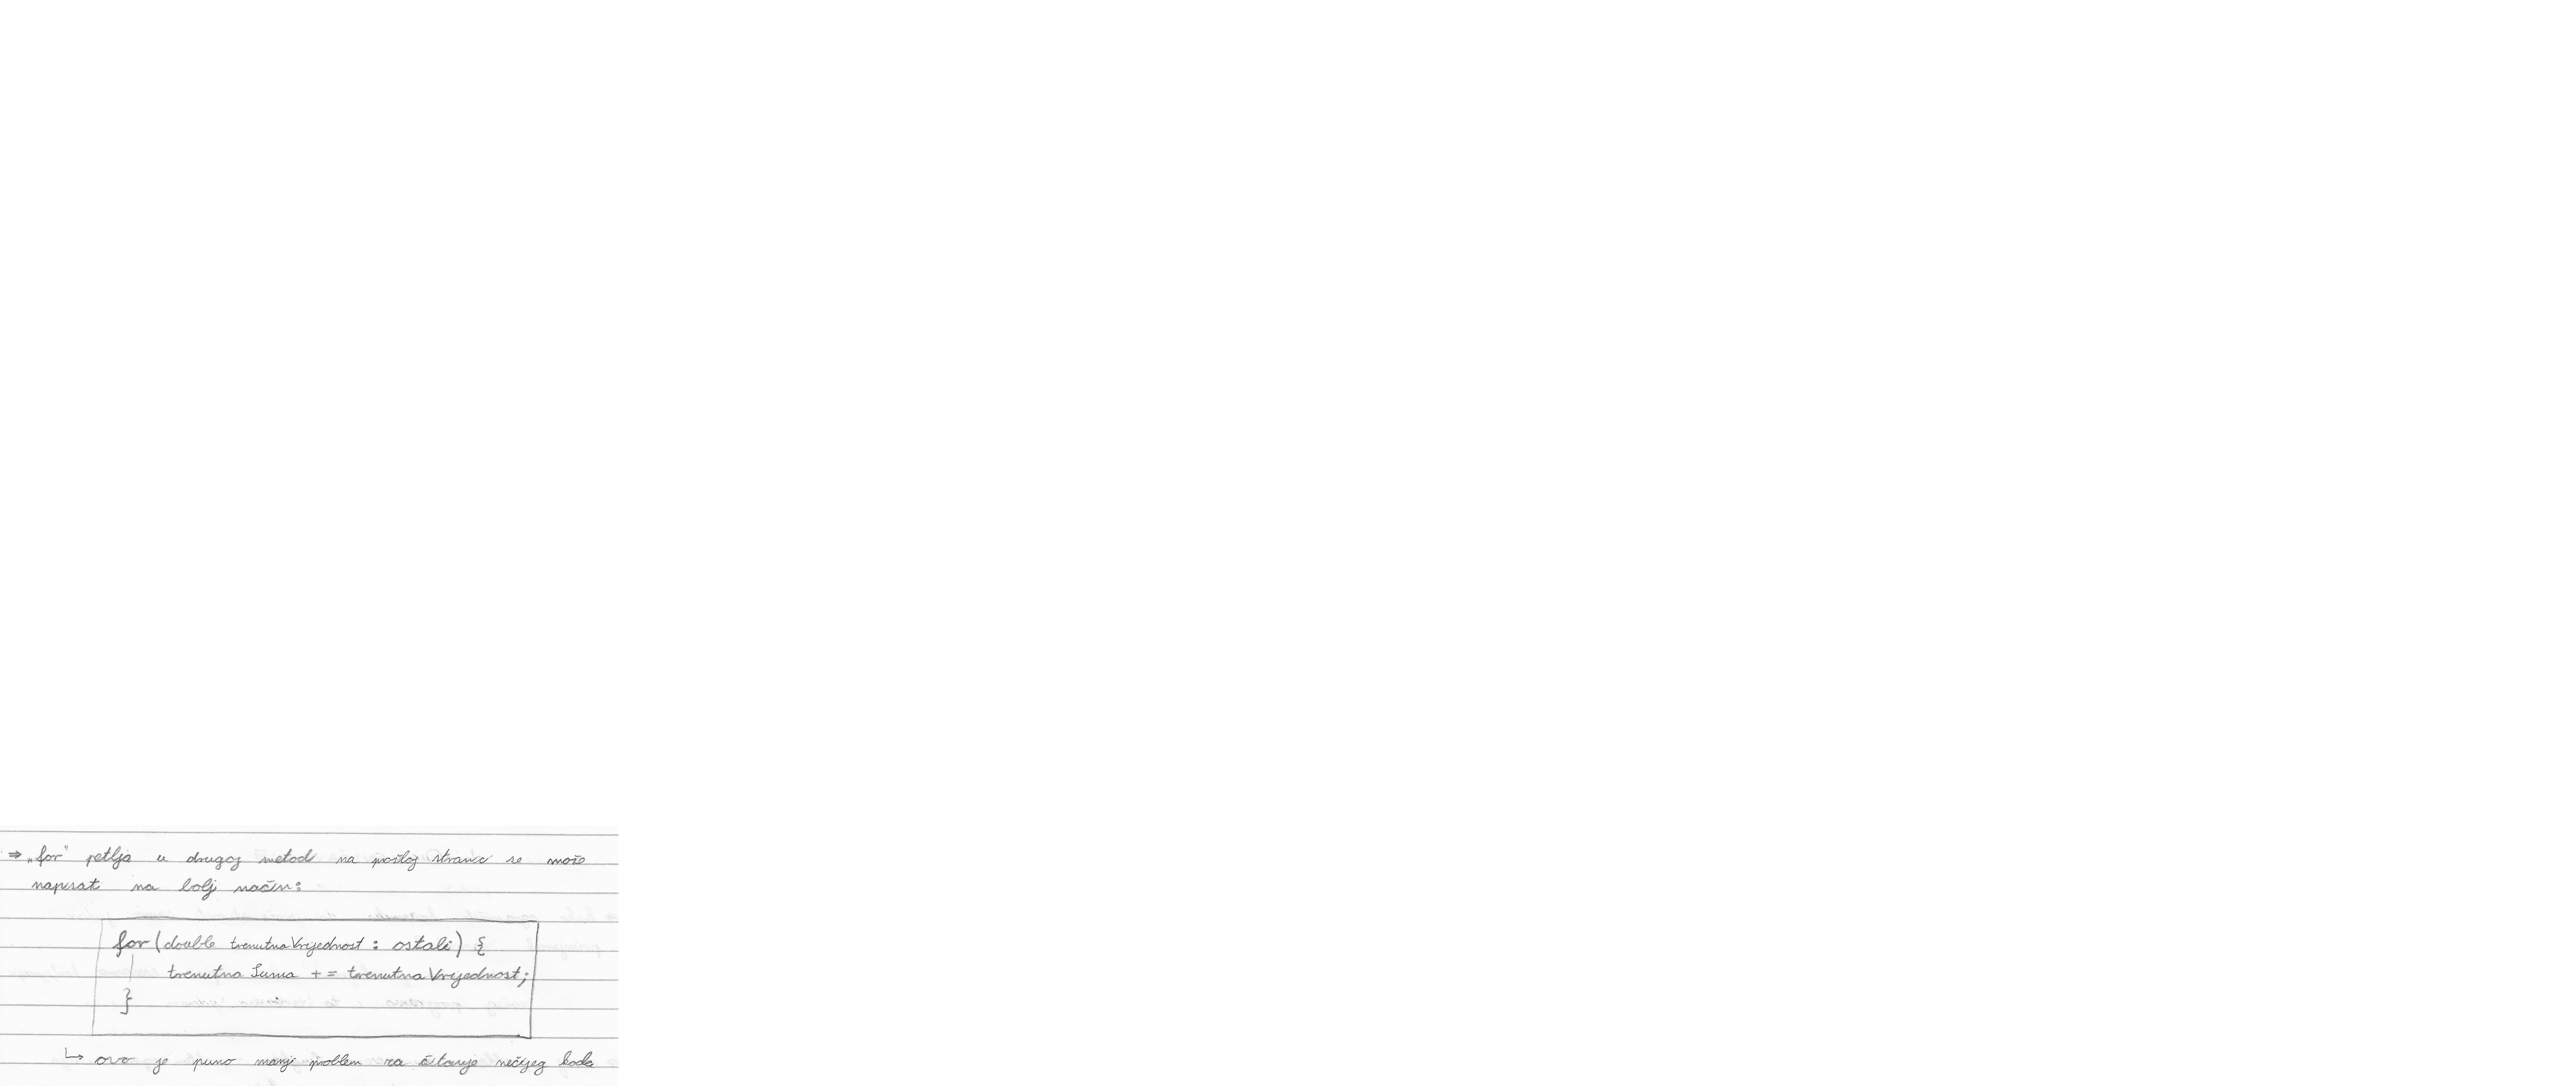 ⇒ „for" petlja u drugoj metodi na prošloj stranci se može
napisat na bolj način:
for (double trenutnaVrijednost : ostali) {
trenutnaSuma += trenutnaVrijednost;
}
↳ ovo je puno manji problem za čitanje nečijeg koda